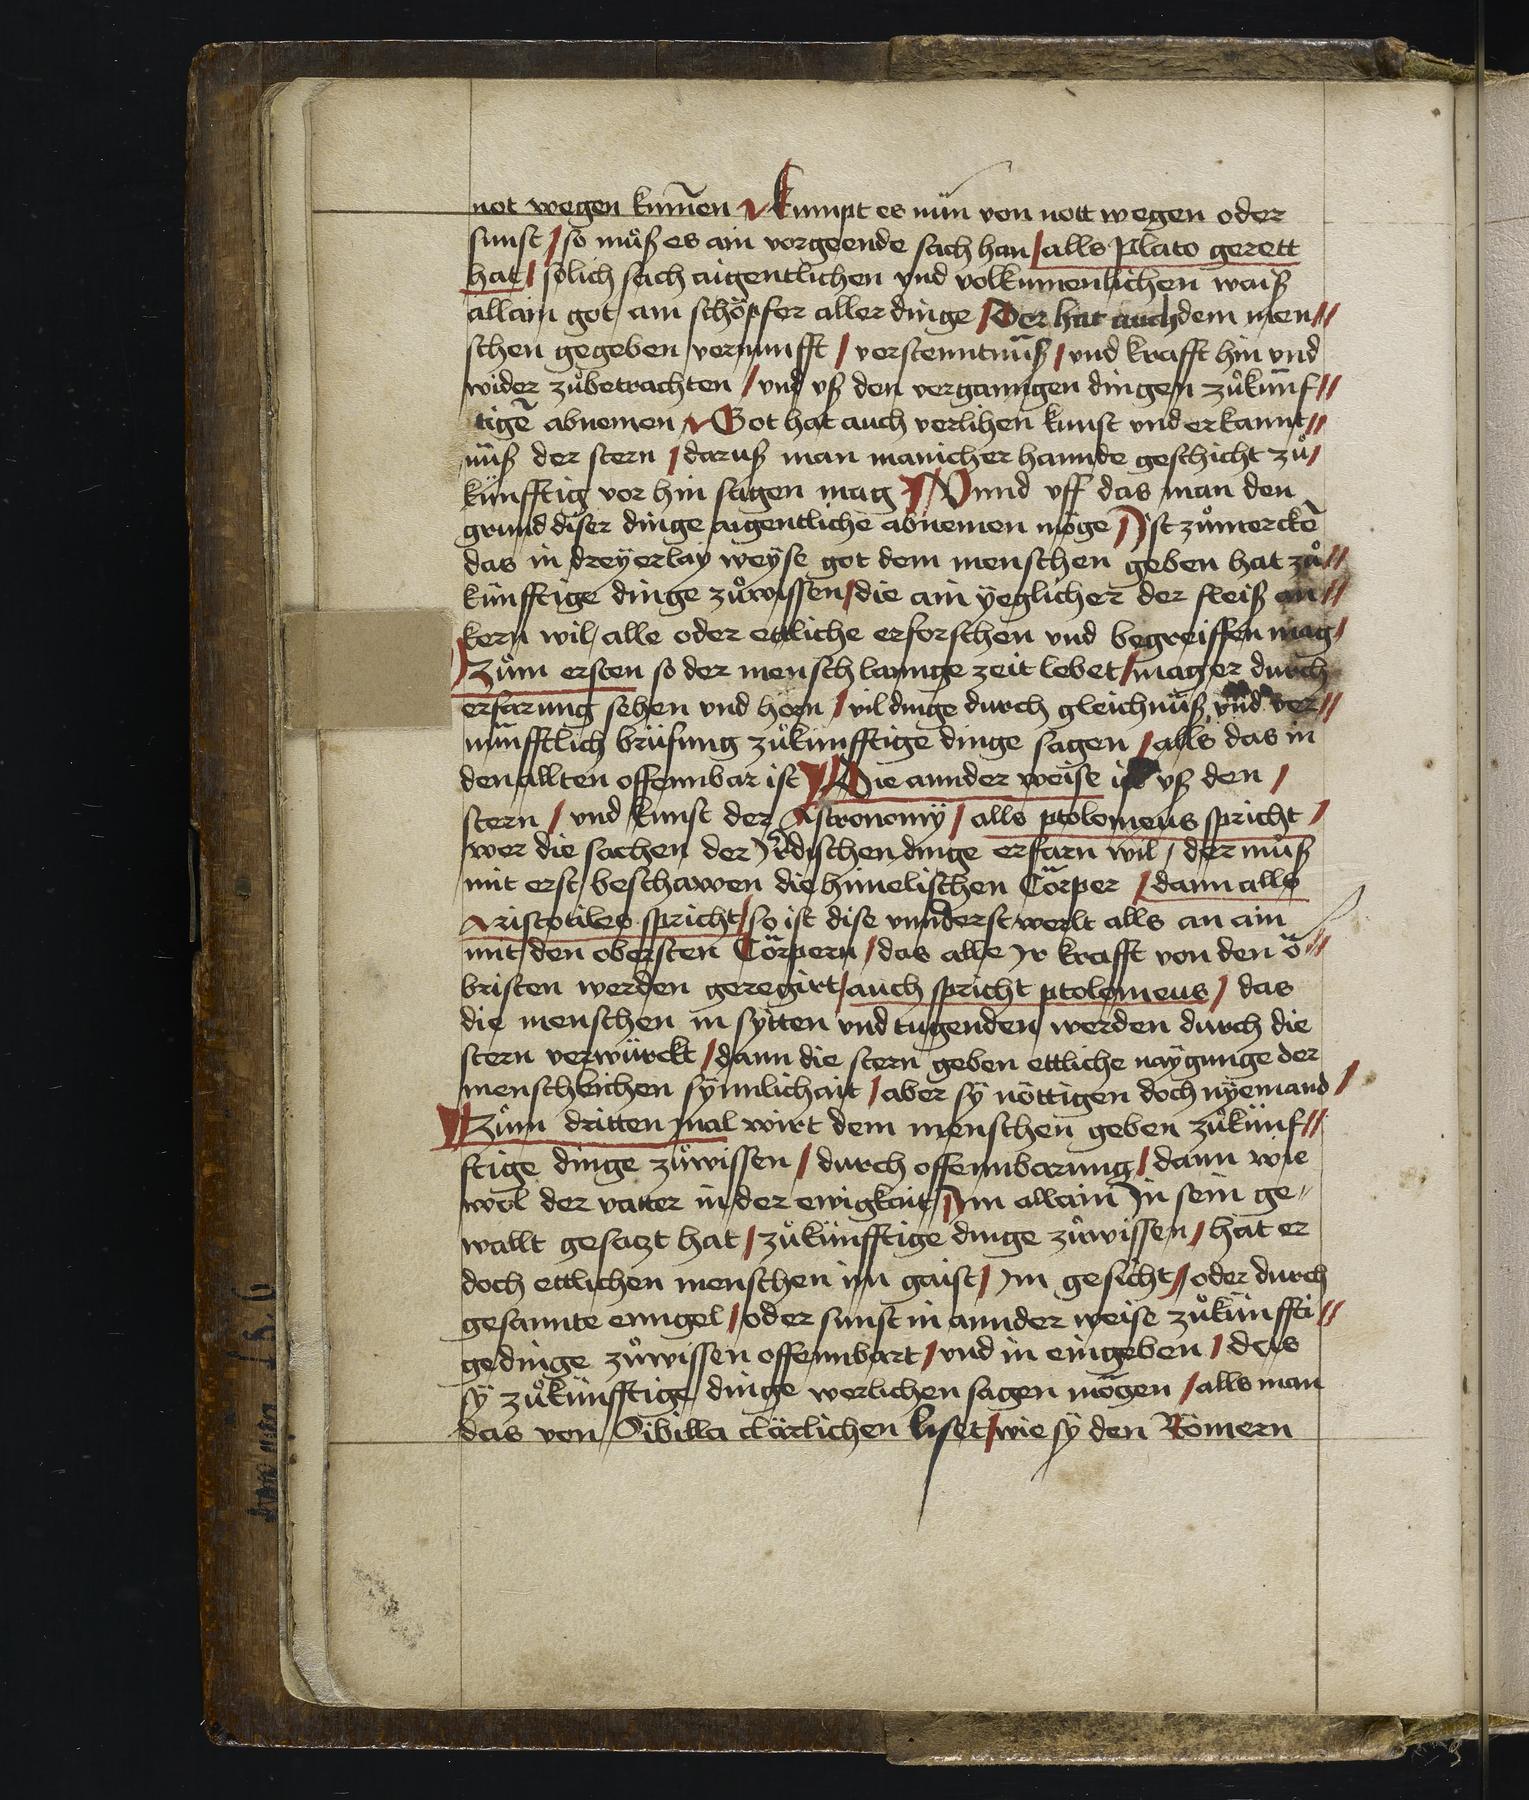 not wegen kum̄en kumpt es nün von nott wegen oder
sunst / so muͦß es ain vorgeende sach han / alls Plato gerett
hat / solich sach aigentlichen vnd volkumenlichen waiß
allain got / ain schöpfer aller dinge / Der hat auch dem men//
schen gegeben vernunfft / verstenntnüß / vnd krafft hin vnd
wider zuͦbetrachten / vnd vß den verganngen dingen zuͦkünf//
tigē abnemen Got hat auch verlihen kunst vnd erkannt//
nüß der stern / daruß man manicher hannde geschicht zuͦ/
künfftig vor hin sagen mag Vnnd vff das man den
grund diser dinge aigentlichē abnemen möge / ist zuͦmerckē
das in dreÿerlay weÿse got dem menschen geben hat zuͦ//
künfftige dinge zuͦwissen / die ain ÿeglicher der fleiß an//
kern wil / alle oder ettliche erforschen vnd begreiffen mag /
Zuͦm ersten so der mensch lannge zeit lebet / mag er durch
erfarung sehen vnd hörn / vil dinge durch gleichnüß vnd ver//
nünfftlich brüfung zuͦkünfftige dinge sagen / alls das in
den allten offennbar ist Die annder weise ist vß den /
stern / vnd kunst der Astronomÿ / alls ptolomeus spricht /
wer die sachen der Yrdischen dinge erfarn wil / der muͦß
mit erst beschawen die himelischen Cörper / dann alls
Aristotiles spricht / so ist dise vnnderst werlt alls an ain
mit den obersten Cörpern / das alle Ir krafft von den ö//
bristen werden geregirt / auch spricht ptolomeus / das
die menschen in sÿtten vnd tugenden werden durch die
stern verwürckt / dann die stern geben ettliche naÿgunge der
menschlichen sÿnnlichait / aber sÿ nöttigen doch nÿemand /
Zuͦm dritten mal wirt dem menschen geben zuͦkünf//
ftige dinge zuͦwissen / durch offennbarung / dann wie
wol der vatter in der ewigkait / Im allain In sein ge//
wallt gesatzt hat / zuͦkünfftige dinge zuͦwissen / hat er
doch ettlichen menschen im gaist / Im gesicht / oder durch
gesannte enngel / oder sunst in annder weise zuͦkünffti//
ge dinge zuͦwissen offennbart / vnd in eingeben / das
sÿ zuͦkünfftige dinge werlichen sagen mögen / alls man
das von Sibilla clärlichen liset / wie sÿ den Römern